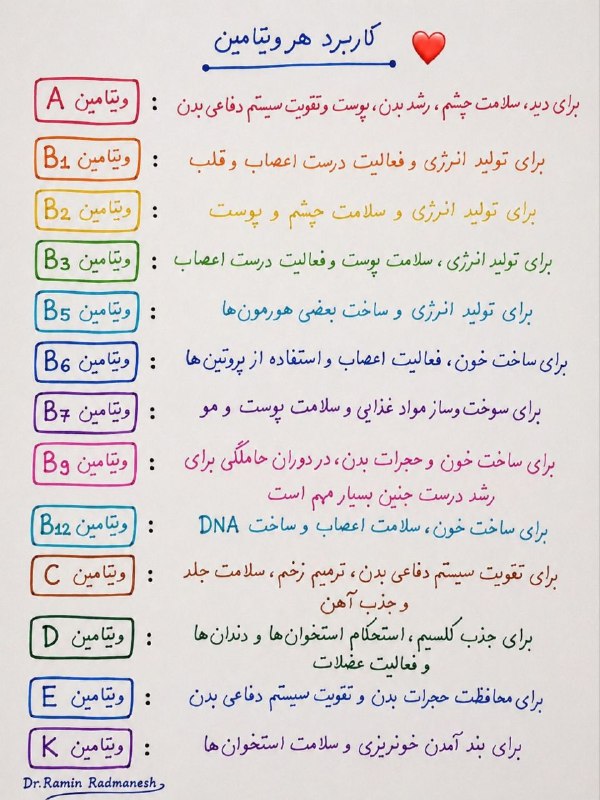 کاربرد هر ویتامین
ویتامین A : برای دید، سلامت چشم، رشد بدن، پوست وتقویت سیستم دفاعی بدن
ویتامین B1 : برای تولید انرژی و فعالیت درست اعصاب و قلب
ویتامین B2 : برای تولید انرژی و سلامت چشم و پوست
ویتامین B3 : برای تولید انرژی، سلامت پوست وفعالیت درست اعصاب
ویتامین B5 : برای تولید انرژی و ساخت بعضی هورمون‌ها
ویتامین B6 : برای ساخت خون، فعالیت اعصاب و استفاده از پروتین‌ها
ویتامین B7 : برای سوخت‌وساز مواد غذایی و سلامت پوست و مو
ویتامین B9 : برای ساخت خون و حجرات بدن، در دوران حاملگی برای
رشد درست جنین بسیار مهم است
ویتامین B12 : برای ساخت خون، سلامت اعصاب و ساخت DNA
ویتامین C : برای تقویت سیستم دفاعی بدن، ترمیم زخم، سلامت جلد
و جذب آهن
ویتامین D : برای جذب کلسیم، استحکام استخوان‌ها و دندان‌ها
و فعالیت عضلات
ویتامین E : برای محافظت حجرات بدن و تقویت سیستم دفاعی بدن
ویتامین K : برای بند آمدن خونریزی و سلامت استخوان‌ها
Dr.Ramin Radmanesh